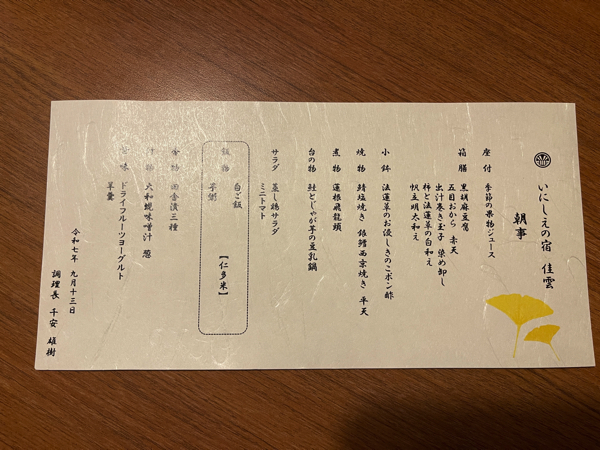 いにしえの宿 佳雲
朝事
座付 季節の果物ジュース
箱膳 黒胡麻豆腐
五目おから 赤天
出汁巻き玉子 染め卸し
柿と法蓮草の白和え
帆立明太和え
小鉢 法蓮草のお浸し きのこポン酢
焼物 鯖塩焼き 銀鱈西京焼き 平天
煮物 蓮根飛龍頭
台の物 鮭とじゃが芋の豆乳鍋
サラダ 蒸し鶏サラダ
ミニトマト
飯物 白ご飯 【仁多米】
芋粥
香物 田舎漬三種
汁物 大和蜆味噌汁 葱
甘味 ドライフルーツヨーグルト
羊羹
令和七年 九月十三日
調理長 千安 雄樹